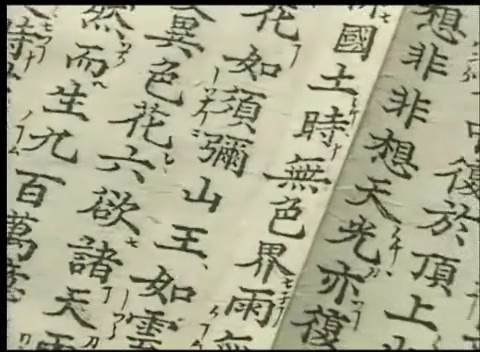 復於頂上
想非非想天光亦復
國土時無色界雨無
花如須彌山王如雲
異色花六欲諸天雨
然而生九百萬
時